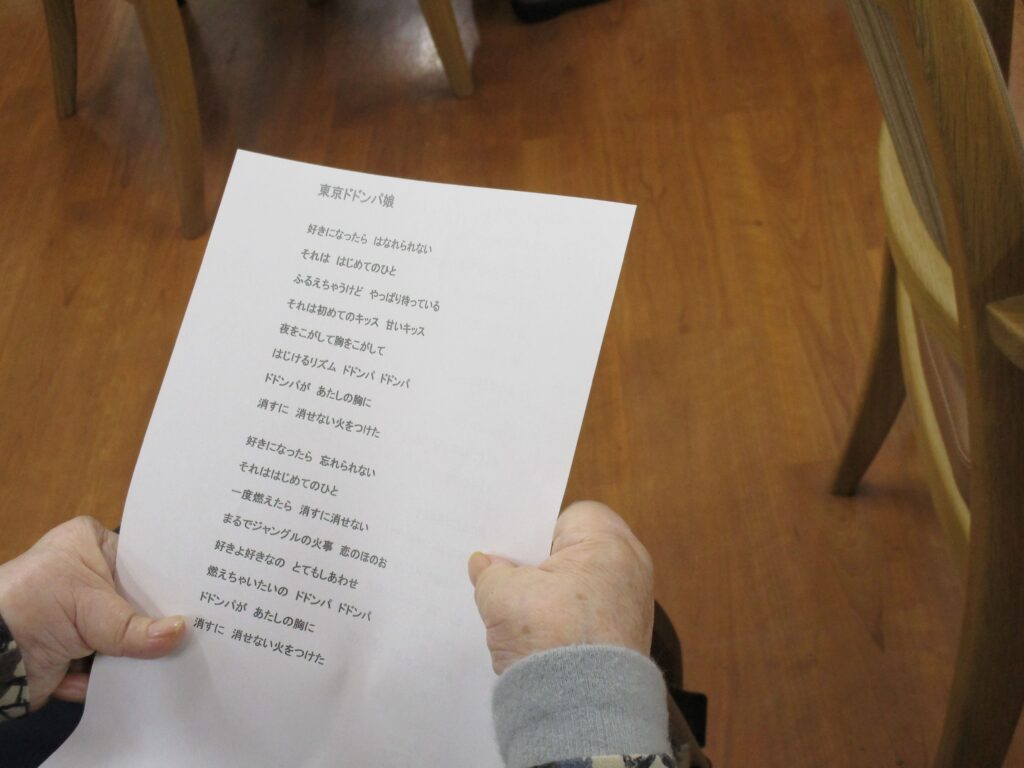 東京ドドンパ娘
好きになったら はなれられない
それは はじめてのひと
ふるえちゃうけど やっぱり待っている
それは初めてのキッス 甘いキッス
夜をこがして胸をこがして
はじけるリズム ドドンパ ドドンパ
ドドンパが あたしの胸に
消すに 消せない火をつけた
好きになったら 忘れられない
それははじめてのひと
一度燃えたら 消すに消せない
まるでジャングルの火事 恋のほのお
好きよ好きなの とてもしあわせ
燃えちゃいたいの ドドンパ ドドンパ
ドドンパが あたしの胸に
消すに 消せない火をつけた